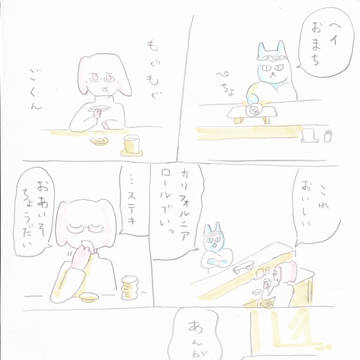 ヘイ
おまち
ぺちょ
もぐもぐ
ごくん
これ
おいしい
カリフォルニア
ロールでいっ
ミステキ
おあいそ
ちょうだい
あんが